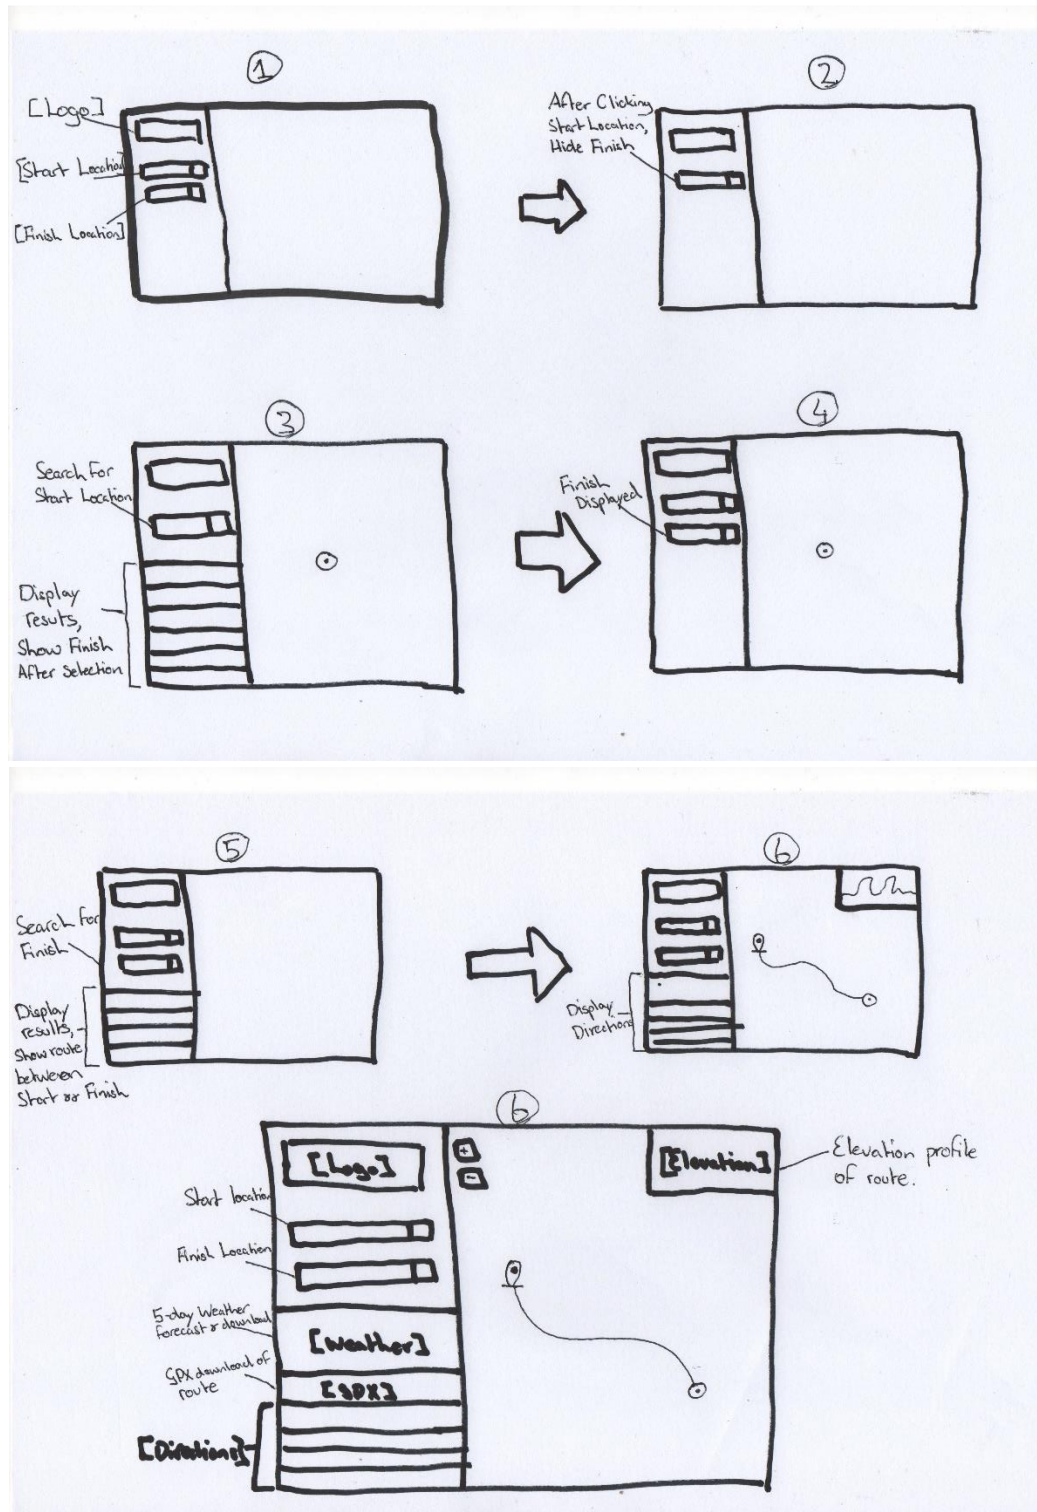 1
[Logo]
[Start Location]
[Finish Location]
2
After Clicking
Start Location,
Hide Finish
3
Search For
Start Location
Display
resuts,
Show Finish
After Selection
4
Finish
Displayed
5
Search For
Finish
Display
results,
Show route
between
Start & Finish
6
Display
Directions
6
[Logo]
Start location
Finish Location
5-day Weather
Forecast & download
[Weather]
GPX download of
route
[GPX]
[Directions]
+
-
[Elevation]
Elevation profile
of route.